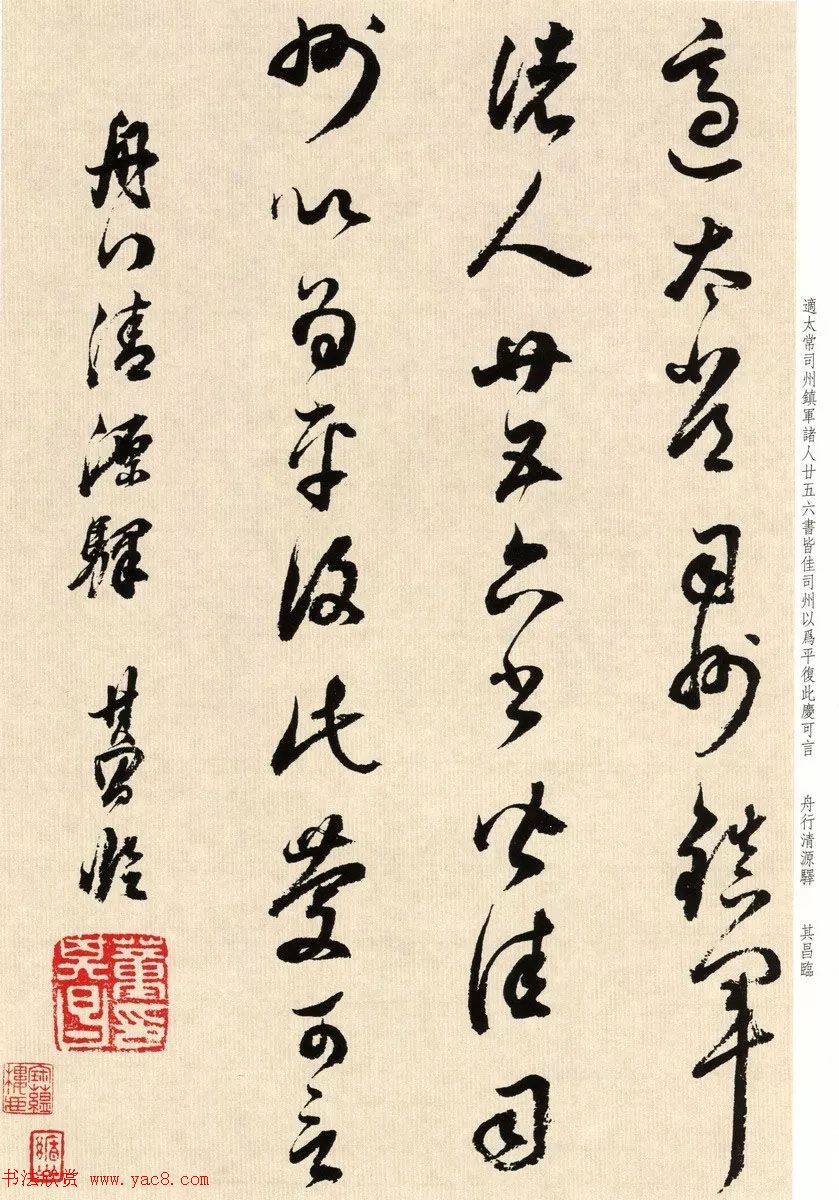 適太常司州鎮軍
諸人廿五六書皆佳司
州以爲平復此慶可言
舟行清源驛 其昌臨
董其昌印
適太常司州鎮軍諸人廿五六書皆佳司州以爲平復此慶可言 舟行清源驛 其昌臨
书法欣赏 www.yac8.com